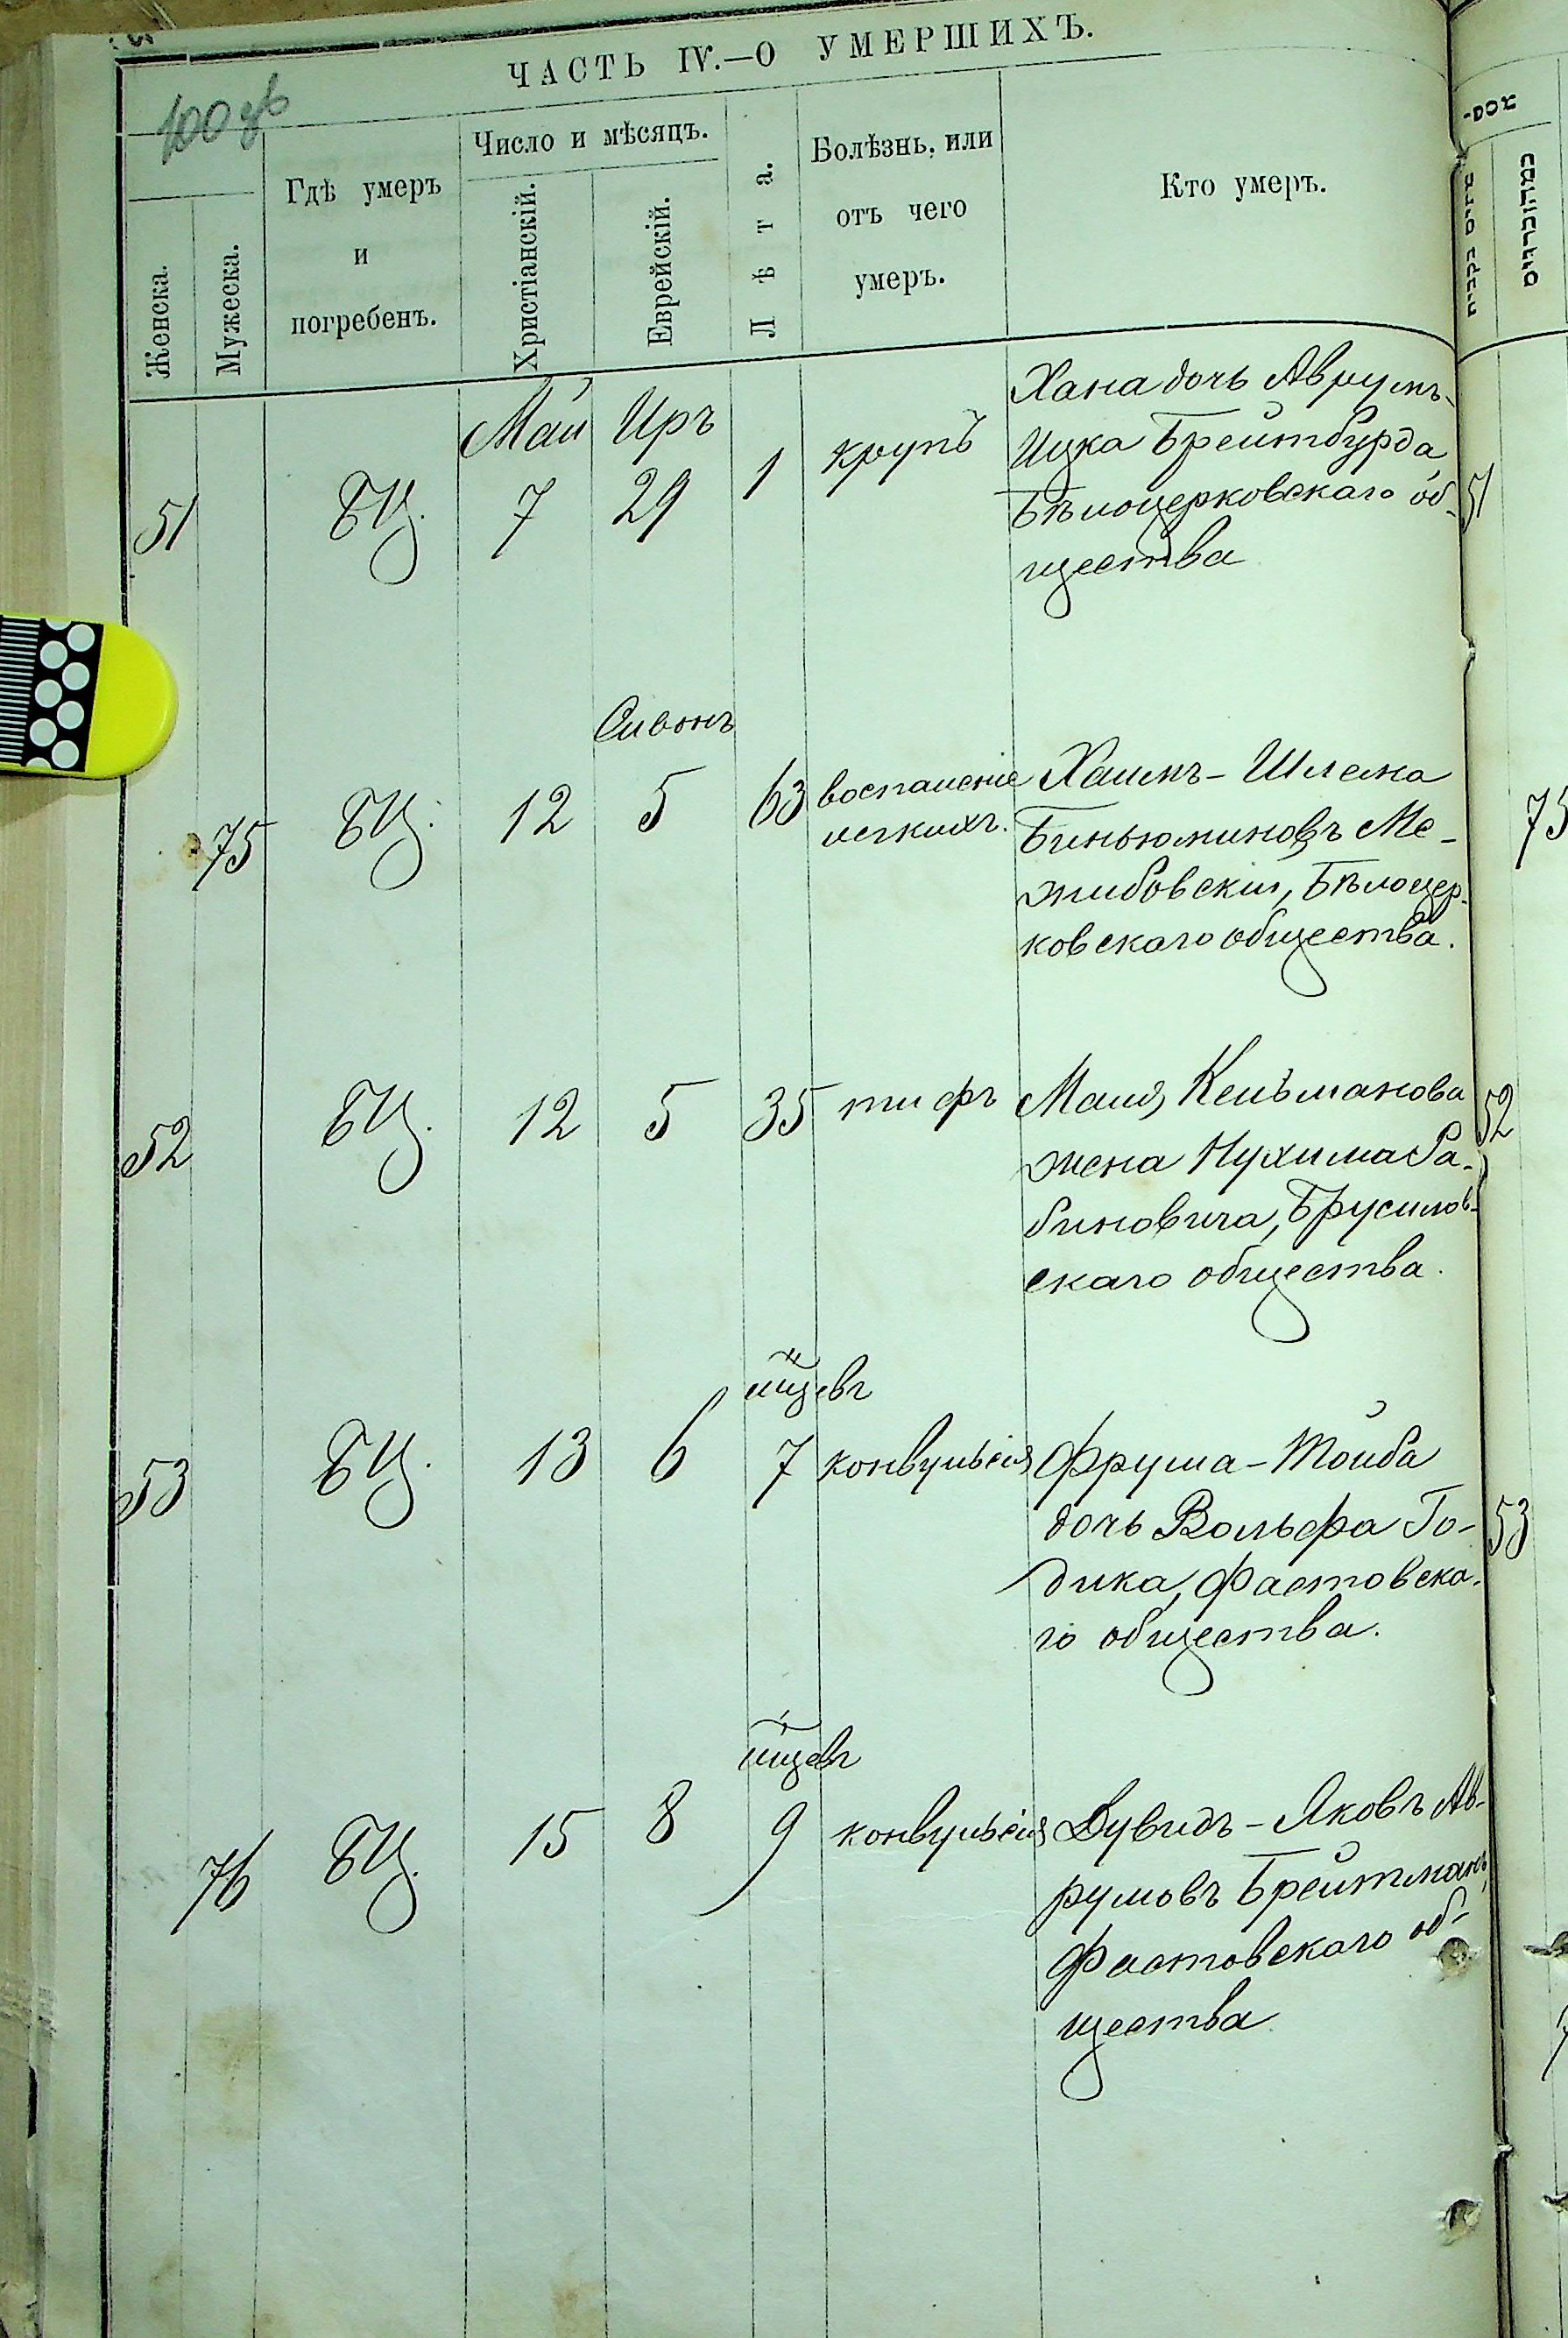 ЧАСТЬ IV.—О УМЕРШИХЪ.
100
Женска.
Мужеска.
Гдѣ умеръ
и
погребенъ.
Число и мѣсяцъ.
Христіанскій.
Еврейскій.
Лѣта.
Болѣзнь, или
отъ чего
умеръ.
Кто умеръ.
Май Иръ
51 БЦ. 7 29 1 крупъ
Хана дочь Аврумъ-
Ицка Брейтбурда,
Бѣлоцерковскаго об-
щества
51
Сивонъ
75 БЦ. 12 5 63 воспаленіе
легкихъ.
Хаимъ-Шлема
Биньюминовъ Ме-
жибовскій, Бѣлоцер-
ковскаго общества.
75
52 БЦ. 12 5 35 тифъ
Маля Кельманова
жена Нухима Ра-
биновича, Брусилов-
скаго общества.
52
мцевъ
53 БЦ. 13 6 7 конвульсія
Фрума-Тойба
дочь Вольфа Го-
дика, Фастовска-
го общества.
53
мцевъ
76 БЦ. 15 8 9 конвульсія
Дувидъ-Яковъ Ав-
румовъ Брейтманъ,
Фастовскаго об-
щества